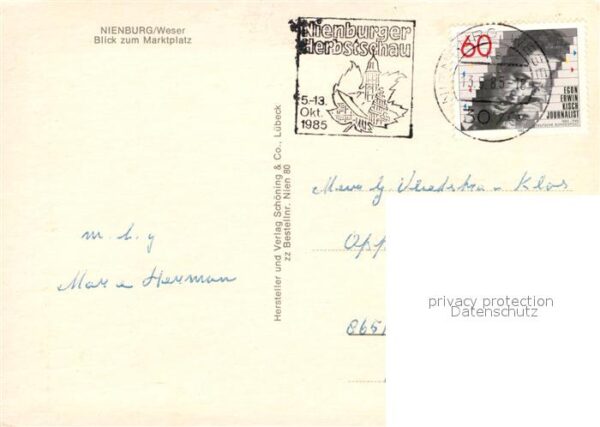 NIENBURG/Weser
Blick zum Marktplatz
Nienburger
Herbstschau
5-13.
Okt.
1985
60
EGON
ERWIN
KISCH
JOURNALIST
DEUTSCHE BUNDESPOST
Hersteller und Verlag Schöning & Co., Lübeck
zz Bestellnr. Nien 80
Klos
Opp
865
m. b. g
Herman
privacy protection
Datenschutz